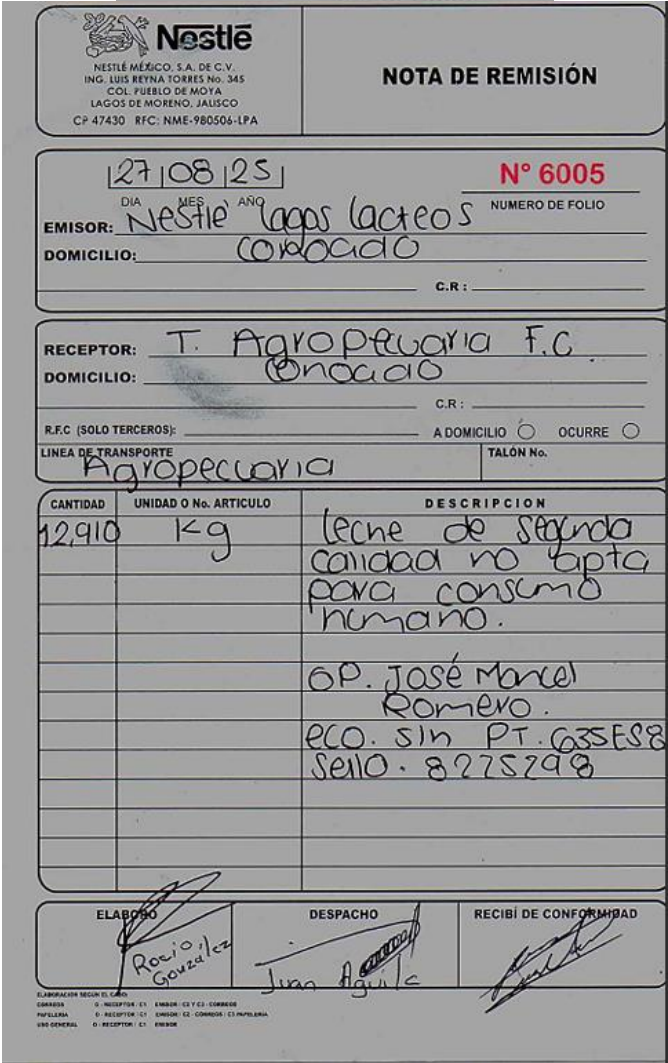 Nestlé
NESTLÉ MÉXICO, S.A. DE C.V.
ING. LUIS REYNA TORRES No. 345
COL. PUEBLO DE MOYA
LAGOS DE MORENO, JALISCO
CP 47430 RFC: NME-980506-LPA
NOTA DE REMISIÓN
27 | 08 | 25
DIA MES AÑO
Nº 6005
NUMERO DE FOLIO
EMISOR: Nestle' lagos lacteos
DOMICILIO: conocido
C.R :
RECEPTOR: T. Agropecuaria F.C.
DOMICILIO: conocido
C.R :
R.F.C (SOLO TERCEROS): A DOMICILIO OCURRE
LINEA DE TRANSPORTE TALÓN No.
Agropecuaria
CANTIDAD UNIDAD O No. ARTICULO DESCRIPCION
12,910 Kg leche de segunda
calidad no apta
para consumo
humano.
OP. José Manuel
Romero.
eco. sin PT. G35ES8
Sello. 8225298
ELABORÓ DESPACHO RECIBÍ DE CONFORMIDAD
Rocio González
Juan Aguila
ELABORACIÓN SEGUN EL CASO:
CORREOS O - RECEPTOR / C1 EMISOR / C2 Y C3 - CORREOS
PAPELERIA O - RECEPTOR / C1 EMISOR / C2 - CORREOS / C3 PAPELERIA
USO GENERAL O - RECEPTOR / C1 EMISOR